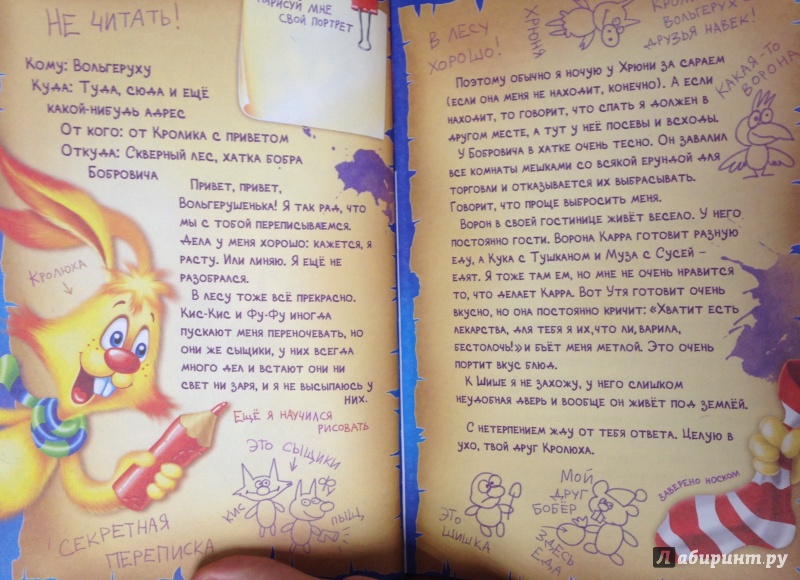 НЕ ЧИТАТЬ!
НАРИСУЙ МНЕ
СВОЙ ПОРТРЕТ
Кому: Вольгеруху
Куда: Туда, сюда и ещё
какой-нибудь адрес
От кого: от Кролика с приветом
Откуда: Скверный лес, хатка бобра
Бобровича
Привет, привет,
Вольгерушенька! Я так рад, что
мы с тобой переписываемся.
Дела у меня хорошо: кажется, я
расту. Или линяю. Я ещё не
разобрался.
В лесу тоже всё прекрасно.
Кис-Кис и Фу-Фу иногда
пускают меня переночевать, но
они же сыщики, у них всегда
много дел и встают они ни
свет ни заря, и я не высыпаюсь у
них.
КРОЛЮХА
Ещё я научился
рисовать
ЭТО СЫЩИКИ
КИС
ПЫЩ
СЕКРЕТНАЯ
ПЕРЕПИСКА
В ЛЕСУ
ХОРОШО!
ХРЮНЯ
ВОЛЬГЕРУХ
ДРУЗЬЯ НАВЕК!
КАКАЯ-ТО
ВОРОНА
Поэтому обычно я ночую у Хрюни за сараем
(если она меня не находит, конечно). А если
находит, то говорит, что спать я должен в
другом месте, а тут у неё посевы и всходы.
У Бобровича в хатке очень тесно. Он завалил
все комнаты мешками со всякой ерундой для
торговли и отказывается их выбрасывать.
Говорит, что проще выбросить меня.
Ворон в своей гостинице живёт весело. У него
постоянно гости. Ворона Карра готовит разную
еду, а Кука с Тушканом и Муза с Сусей –
едят. Я тоже там ем, но мне не очень нравится
то, что делает Карра. Вот Утя готовит очень
вкусно, но она постоянно кричит: «Хватит есть
лекарства, для тебя я их,что ли,варила,
бестолочь!» и бьёт меня метлой. Это очень
портит вкус блюд.
К Шише я не захожу, у него слишком
неудобная дверь и вообще он живёт под землёй.
С нетерпением жду от тебя ответа. Целую в
ухо, твой друг Кролюха.
ЭТО
ШИШКА
МОЙ
ДРУГ
БОБЁР
ЗДЕСЬ
ЕДА
ЗАВЕРЕНО НОСКОМ
Лабиринт.ру